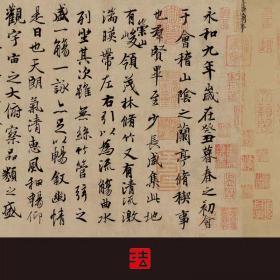 永和九年歲在癸丑暮春之初會
于會稽山陰之蘭亭脩稧事
也群賢畢至少長咸集此地
有崇山峻領茂林脩竹又有清流激
湍暎帶左右引以為流觴曲水
列坐其次雖無絲竹管弦之
盛一觴一詠亦足以暢敘幽情
是日也天朗氣清惠風和暢仰
觀宇宙之大俯察品類之盛
法